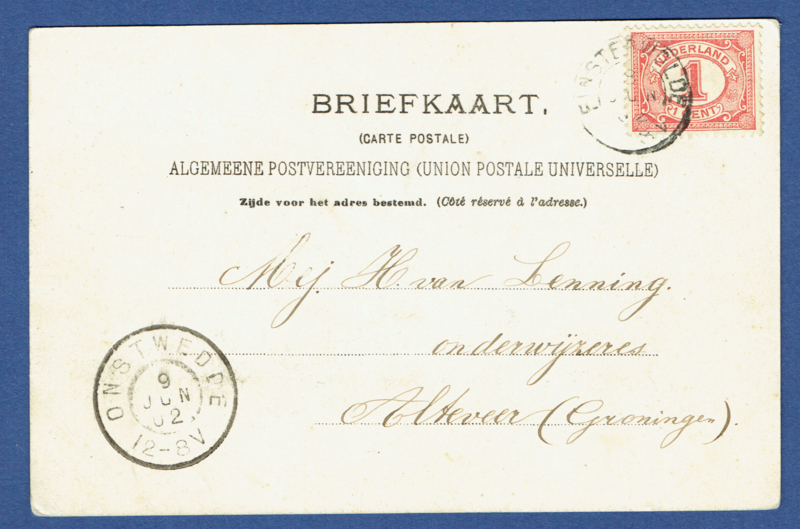 NEDERLAND
1
CENT
BRIEFKAART.
(CARTE POSTALE)
ALGEMEENE POSTVEREENIGING (UNION POSTALE UNIVERSELLE)
Zijde voor het adres bestemd. (Côté réservé à l'adresse.)
Mej. H. van Lenning.
onderwijzeres
Alteveer (Groningen).
ONSTWEDDE
9
JUN
02
12-8V